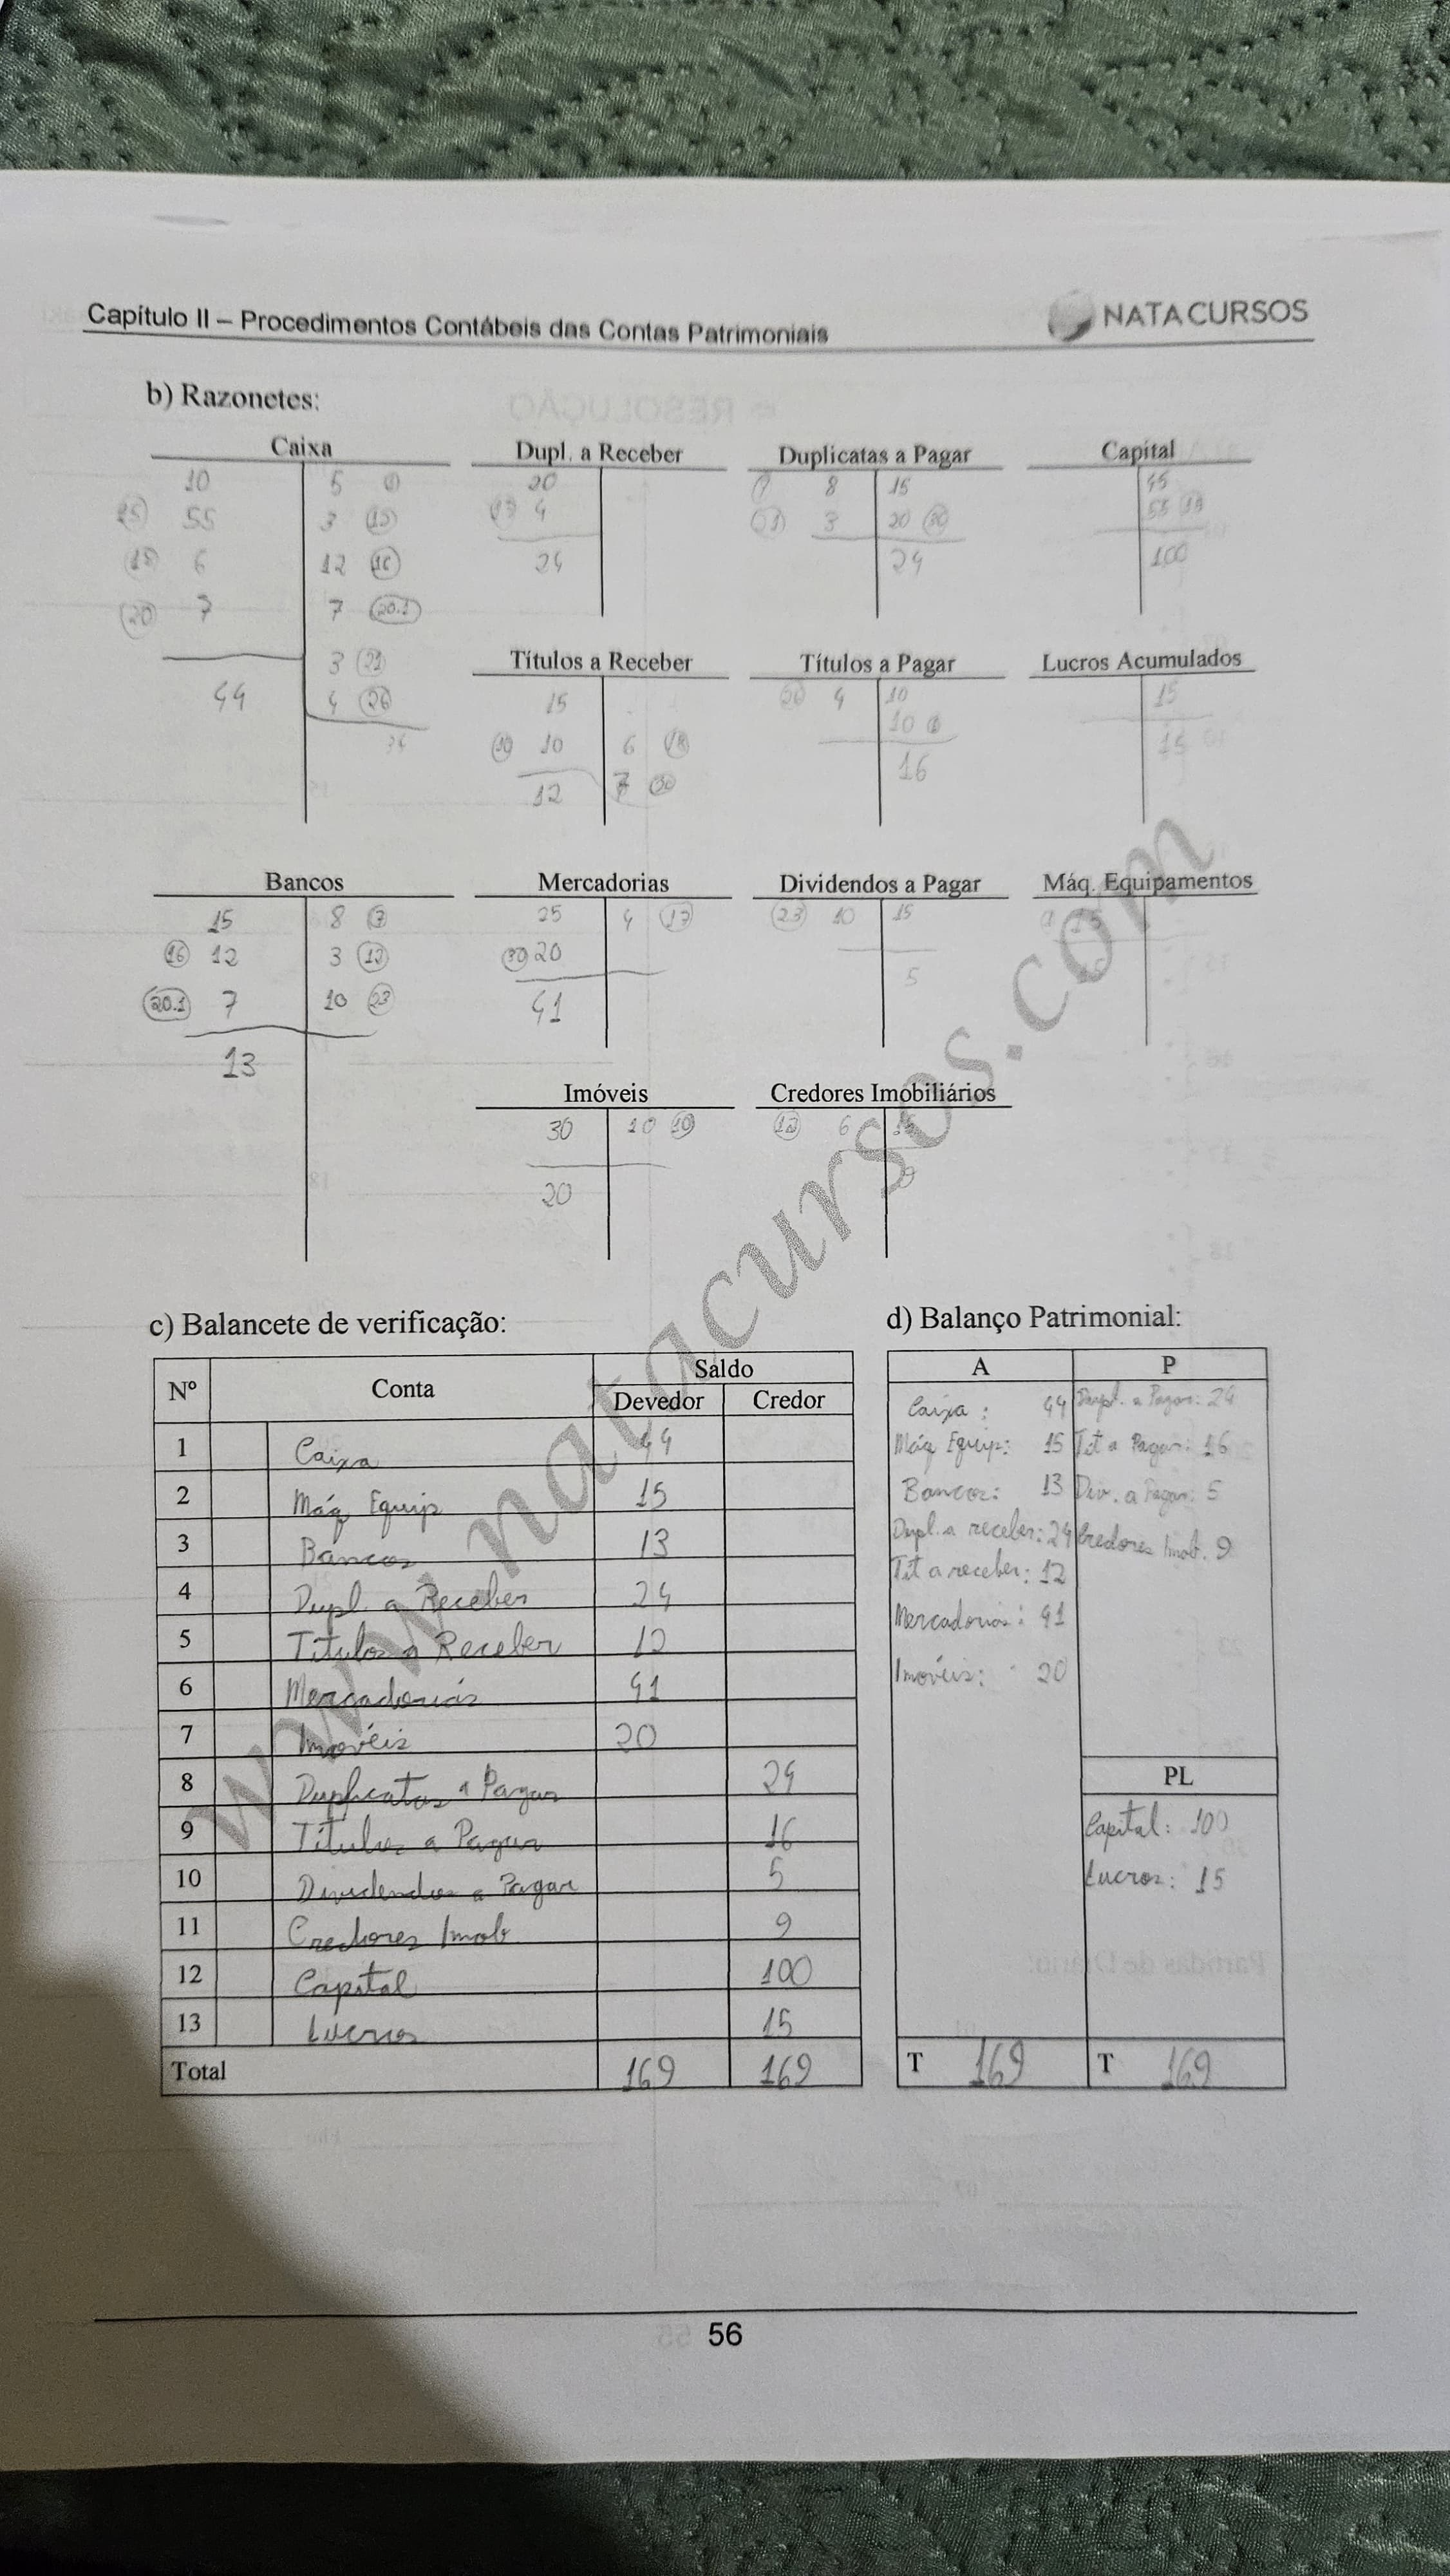 Capítulo II – Procedimentos Contábeis das Contas Patrimoniais
NATA CURSOS
b) Razonetes:
Caixa
10 5
55 3
6 12
20 7 7 20.1
3 21
44 4 26
34
Dupl. a Receber
20
4
24
Duplicatas a Pagar
8 15
3 20 30
24
Capital
45
55
100
Títulos a Receber
15
10 10 6 18
12 7
Títulos a Pagar
4 10
10
16
Lucros Acumulados
15
15
Bancos
15 8 7
16 12 3 12
20.1 7 10 23
13
Mercadorias
25 4 17
30 20
41
Dividendos a Pagar
23 10 15
5
Máq. Equipamentos
Imóveis
30 10 10
20
Credores Imobiliários
12 6 15
9
c) Balancete de verificação:
Nº Conta Saldo
Devedor Credor
1 Caixa 44
2 Máq Equip 15
3 Bancos 13
4 Dupl. a Receber 24
5 Títulos a Receber 12
6 Mercadorias 41
7 Imóveis 20
8 Duplicatas a Pagar 24
9 Títulos a Pagar 16
10 Dividendos a Pagar 5
11 Credores Imob. 9
12 Capital 100
13 Lucros 15
Total 169 169
d) Balanço Patrimonial:
A P
Caixa: 44 Dupl. a Pagar: 24
Máq Equip: 15 Tit a Pagar: 16
Bancos: 13 Div. a Pagar: 5
Dupl. a receber: 24 Credores Imob. 9
Tit a receber: 12
Mercadorias: 41
Imóveis: 20
PL
Capital: 100
Lucros: 15
T 169 T 169
www.natacursos.com
56